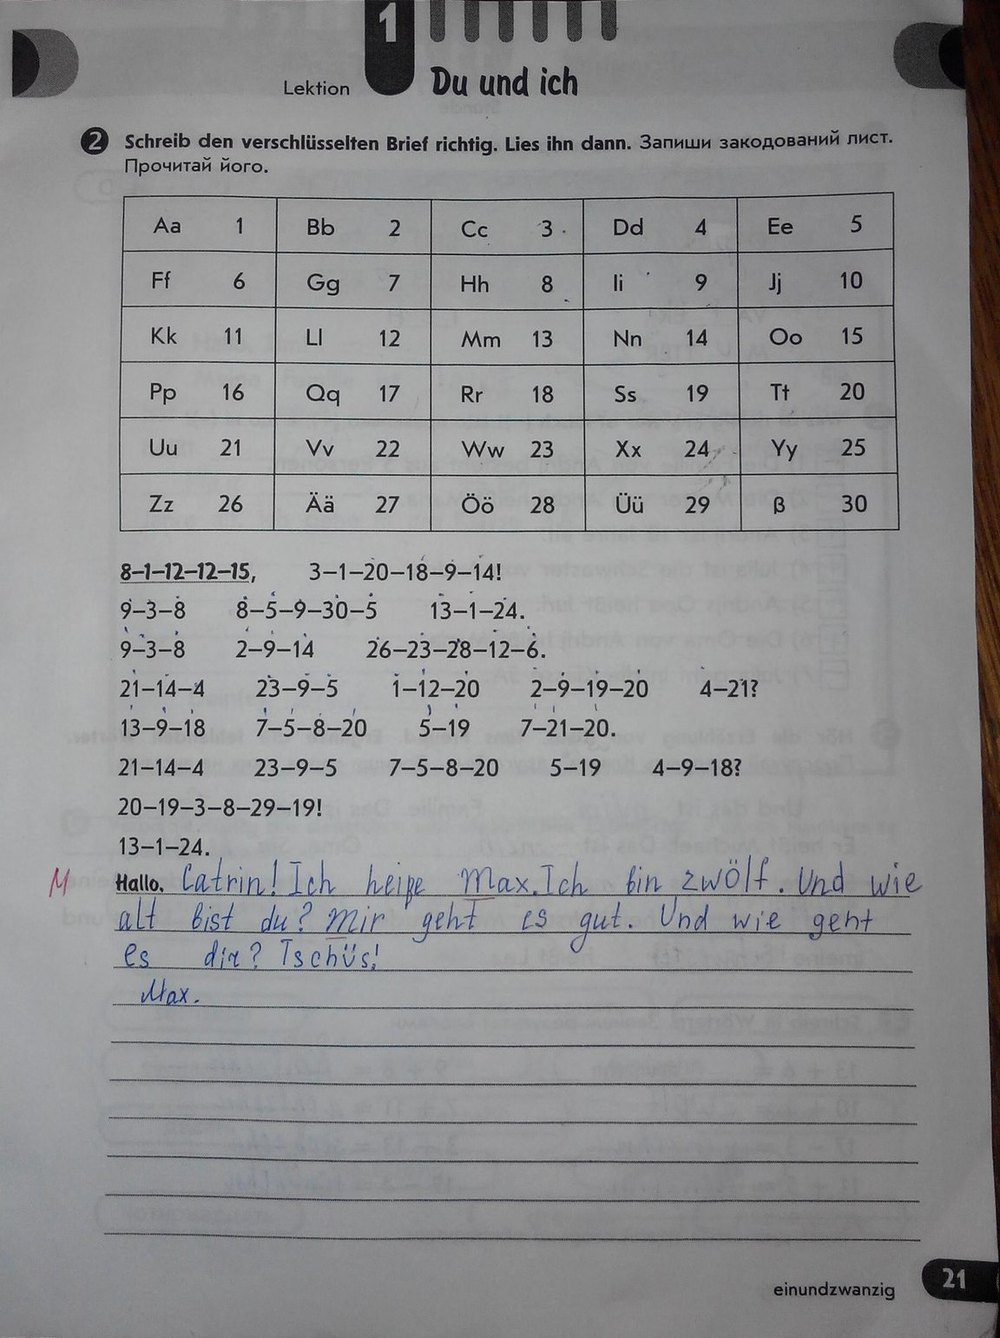 1
Lektion Du und ich
2 Schreib den verschlüsselten Brief richtig. Lies ihn dann. Запиши закодований лист.
Прочитай його.
Aa 1 Bb 2 Cc 3 Dd 4 Ee 5
Ff 6 Gg 7 Hh 8 Ii 9 Jj 10
Kk 11 Ll 12 Mm 13 Nn 14 Oo 15
Pp 16 Qq 17 Rr 18 Ss 19 Tt 20
Uu 21 Vv 22 Ww 23 Xx 24 Yy 25
Zz 26 Ää 27 Öö 28 Üü 29 ß 30
8–1–12–12–15, 3–1–20–18–9–14!
9–3–8 8–5–9–30–5 13–1–24.
9–3–8 2–9–14 26–23–28–12–6.
21–14–4 23–9–5 1–12–20 2–9–19–20 4–21?
13–9–18 7–5–8–20 5–19 7–21–20.
21–14–4 23–9–5 7–5–8–20 5–19 4–9–18?
20–19–3–8–29–19!
13–1–24.
M Hallo, Catrin! Ich heiße Max. Ich bin zwölf. Und wie
alt bist du? Mir geht es gut. Und wie geht
es dir? Tschüs!
Max.
einundzwanzig 21